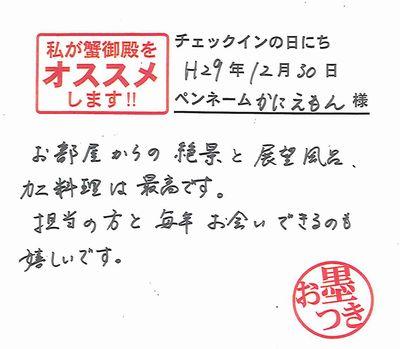 私が蟹御殿を
オススメ
します!!
チェックインの日にち
H29年12月30日
ペンネームかにえもん 様
お部屋からの絶景と展望風呂、
カニ料理は最高です。
担当の方と毎年お会いできるのも
嬉しいです。
お墨つき